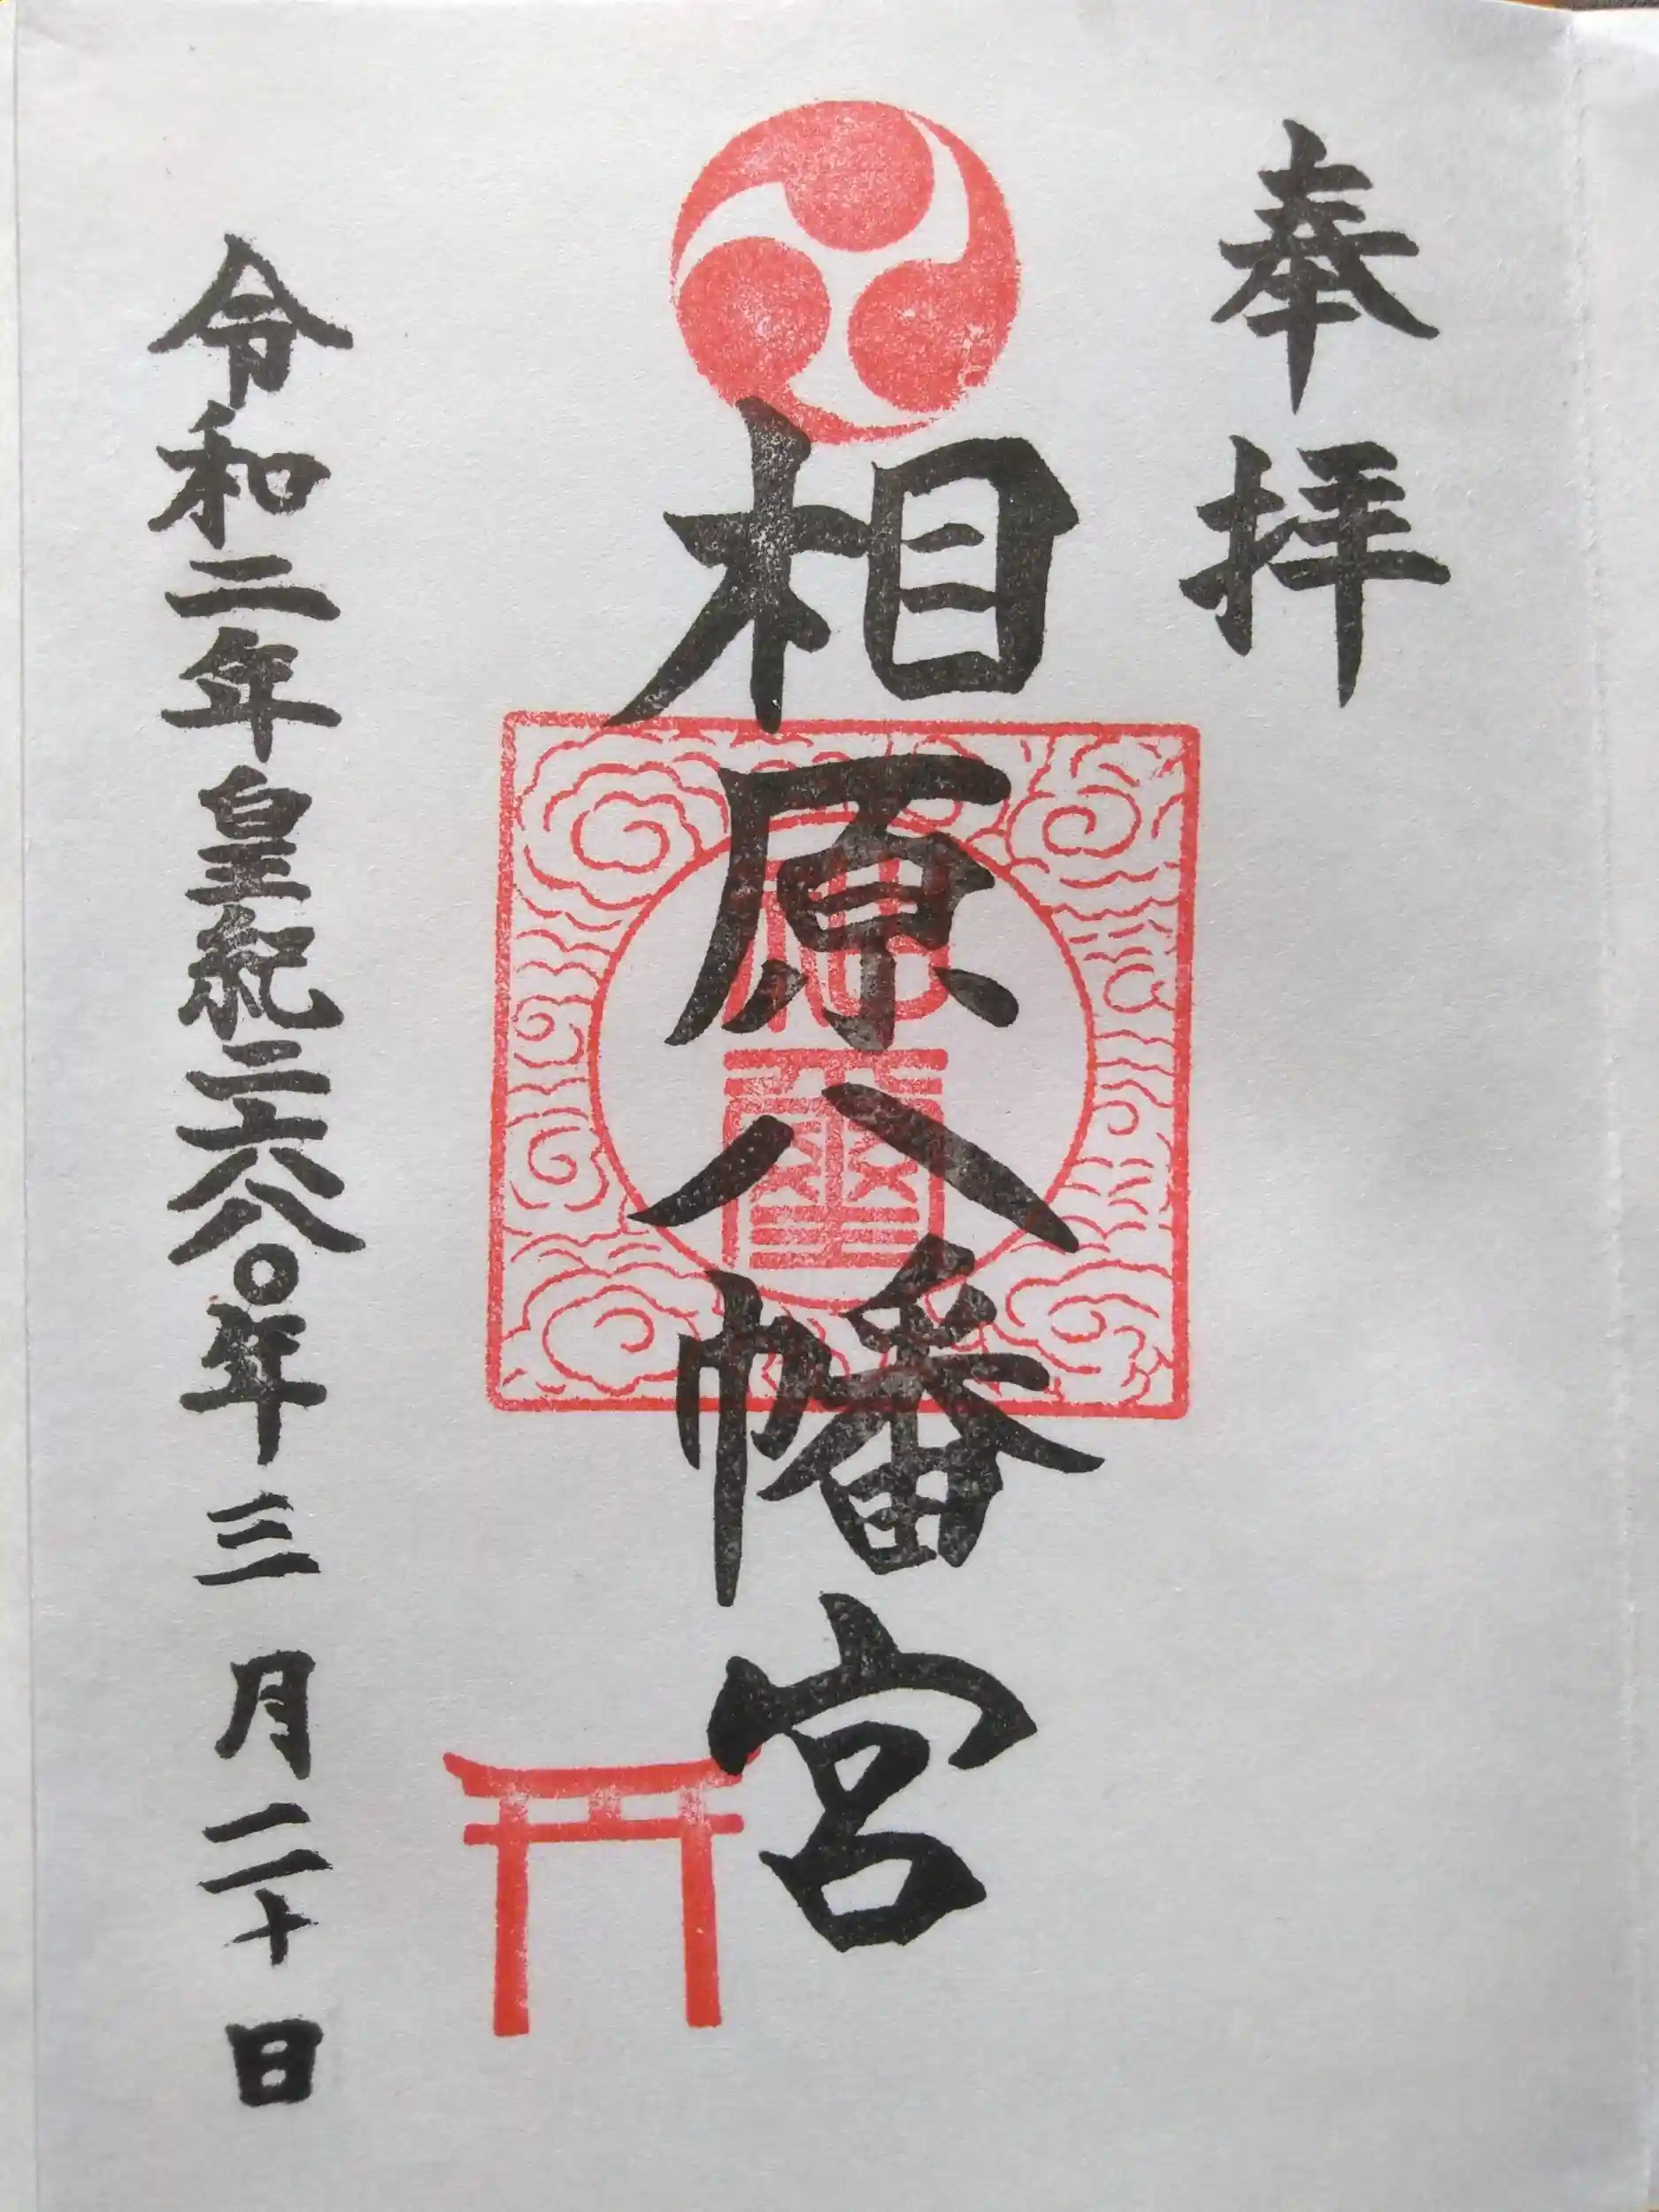 奉拝
相原八幡宮
神璽
令和二年皇紀二六八〇年三月二十日